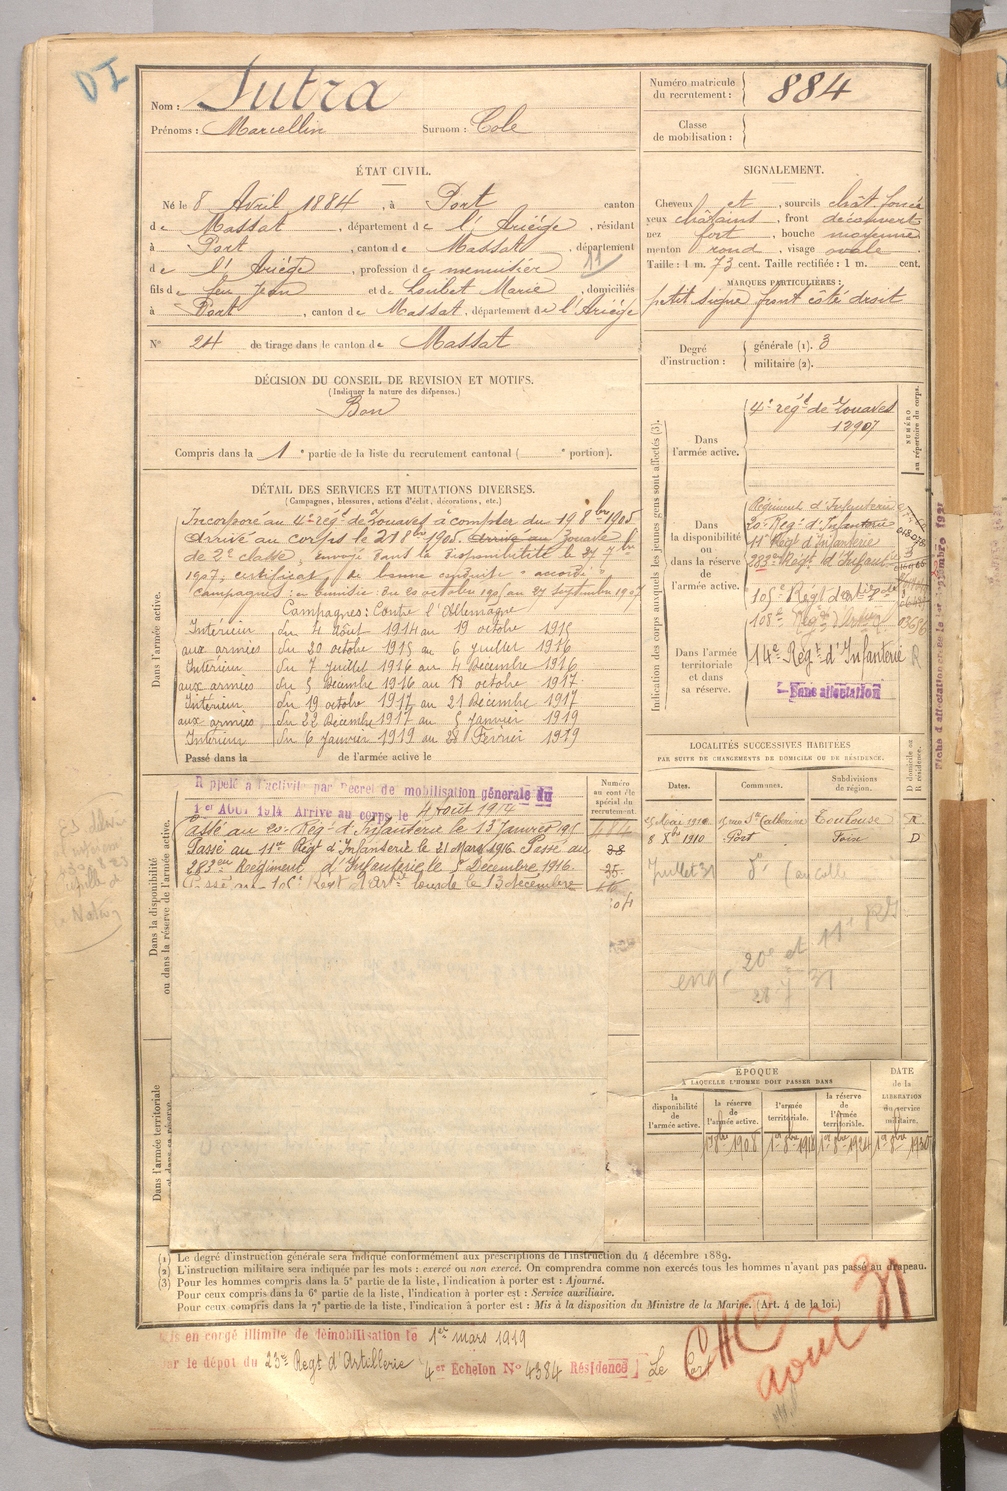 DI
Nom : Sutra
Prénoms : Marcellin Surnom : Cole
Numéro matricule du recrutement : 884
Classe de mobilisation :
ÉTAT CIVIL.
Né le 8 Avril 1884, à Port canton
de Massat, département de l'Ariége, résidant
à Port, canton de Massat, département
de l'Ariége, profession de menuisier 11
fils de feu Jean et de Loubet Marie, domiciliés
à Port, canton de Massat, département de l'Ariége
N° 24 de tirage dans le canton de Massat
SIGNALEMENT.
Cheveux et, sourcils chât. foncé
yeux châtains, front découvert
nez fort, bouche moyenne
menton rond, visage ovale
Taille : 1 m. 73 cent. Taille rectifiée : 1 m. cent.
MARQUES PARTICULIÈRES :
petit signe front côté droit
Degré d'instruction : générale (1). 3
militaire (2).
DÉCISION DU CONSEIL DE REVISION ET MOTIFS.
(Indiquer la nature des dispenses.)
Bon
Compris dans la 1e partie de la liste du recrutement cantonal ( e portion).
DÉTAIL DES SERVICES ET MUTATIONS DIVERSES.
(Campagnes, blessures, actions d'éclat, décorations, etc.)
Dans l'armée active.
Incorporé au 4e régt de Zouaves à compter du 19 8bre 1905
Arrivé au corps le 21 8bre 1905. Arrivé au Zouave
de 2e classe, envoyé dans la disponibilité le 27 7bre
1907, certificat de bonne conduite "accordé"
Campagnes : en Tunisie : du 20 octobre 1905 au 27 septembre 1907
Campagnes: Contre l'Allemagne
Intérieur du 4 août 1914 au 19 octobre 1915
aux armées du 20 octobre 1915 au 6 juillet 1916
Intérieur du 7 juillet 1916 au 4 Décembre 1916
aux armées du 5 Décembre 1916 au 18 octobre 1917
Intérieur du 19 octobre 1917 au 21 Décembre 1917
aux armées du 22 Décembre 1917 au 5 janvier 1919
Intérieur du 6 janvier 1919 au 28 Février 1919
Passé dans la de l'armée active le
Indication des corps auxquels les jeunes gens sont affectés (3).
NUMÉRO au répertoire du corps.
Dans l'armée active.
4e régt de Zouaves
12907
Dans la disponibilité ou dans la réserve de l'armée active.
Régiment d'Infanterie
20e Régt d'Infanterie
11e Régt d'Infanterie
283e Régt d'Infant
105e Régt d'art
108e Régt
Dans l'armée territoriale et dans sa réserve.
14e Régt d'Infanterie R
Sans affectation
LOCALITÉS SUCCESSIVES HABITÉES
PAR SUITE DE CHANGEMENTS DE DOMICILE OU DE RÉSIDENCE.
Dates. Communes. Subdivisions de région. D domicile ou R résidence.
Mai 1910 Ste Catherine Toulouse R
8 Xbre 1910 Port Foix D
Juillet 31 do
20e et 11e
Dans la disponibilité ou dans la réserve de l'armée active.
Numéro au contrôle spécial du recrutement.
Rappelé à l'activité par Décret de mobilisation générale du
1er AOUT 1914 Arrivé au corps le 4 Août 1914
Passé au 20e Régt d'Infanterie le 13 Janvier 1915
Passé au 11e Régt d'Infanterie le 21 Mars 1916. Passé au
283ème Régiment d'Infanterie le 5 Décembre 1916.
Passé au 105e Régt d'Art. lourde le 13 décembre
Dans l'armée territoriale et dans sa réserve.
ÉPOQUE
A LAQUELLE L'HOMME DOIT PASSER DANS
la disponibilité de l'armée active.
la réserve de l'armée active.
l'armée territoriale.
la réserve de l'armée territoriale.
DATE de la LIBÉRATION du service militaire.
1er 8bre 1908
1er 8bre 1918
1er 8bre 1924
1er 8bre 1930
(1) Le degré d'instruction générale sera indiqué conformément aux prescriptions de l'instruction du 4 décembre 1889.
(2) L'instruction militaire sera indiquée par les mots : exercé ou non exercé. On comprendra comme non exercés tous les hommes n'ayant pas passé au drapeau.
(3) Pour les hommes compris dans la 5e partie de la liste, l'indication à porter est : Ajourné.
Pour ceux compris dans la 6e partie de la liste, l'indication à porter est : Service auxiliaire.
Pour ceux compris dans la 7e partie de la liste, l'indication à porter est : Mis à la disposition du Ministre de la Marine. (Art. 4 de la loi.)
is en congé illimité de démobilisation le 1er mars 1919
par le dépot du 23me Regt d'Artillerie 4er Échelon No 4384 Résidence Le Port
août 31